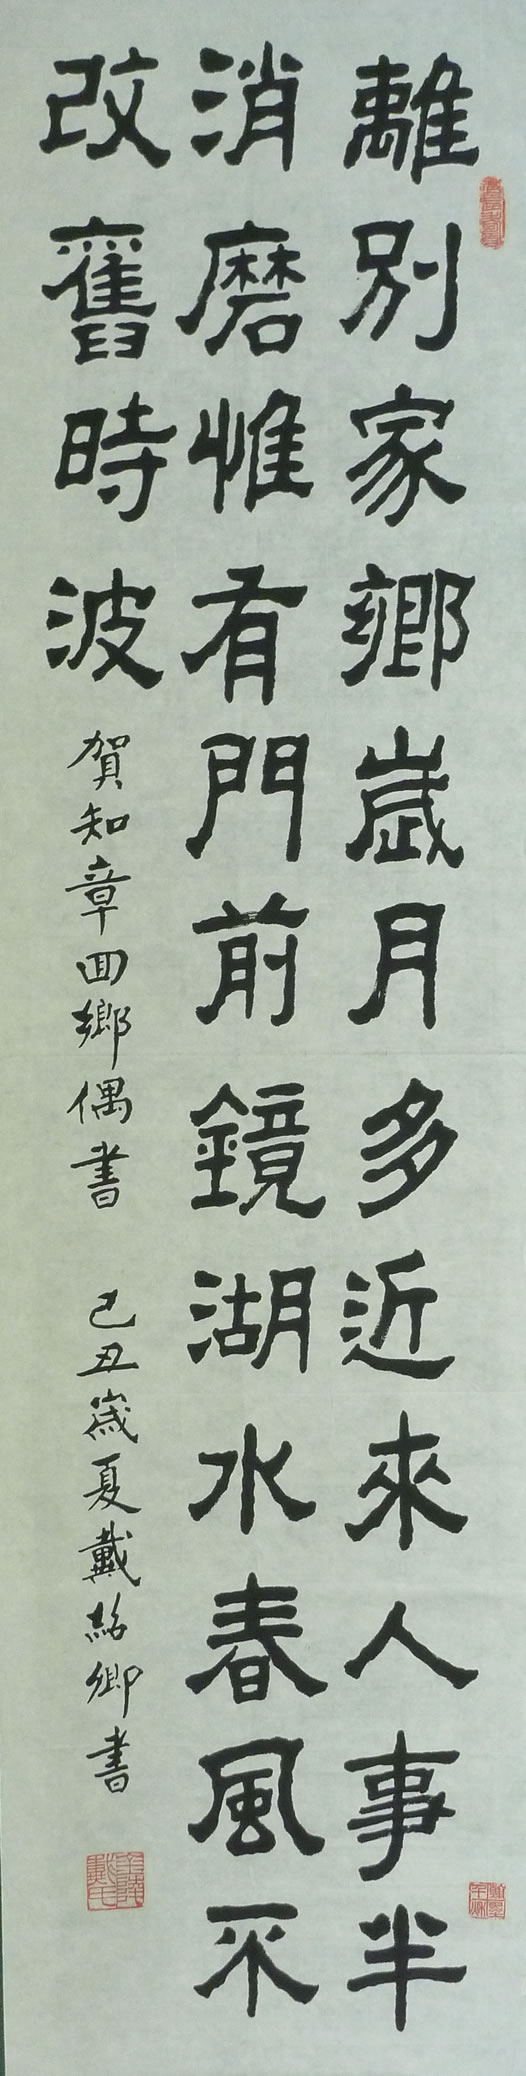 離別家鄉歲月多近來人事半
消磨惟有門前鏡湖水春風不
改舊時波
賀知章回鄉偶書 己丑歲夏戴紹卿書